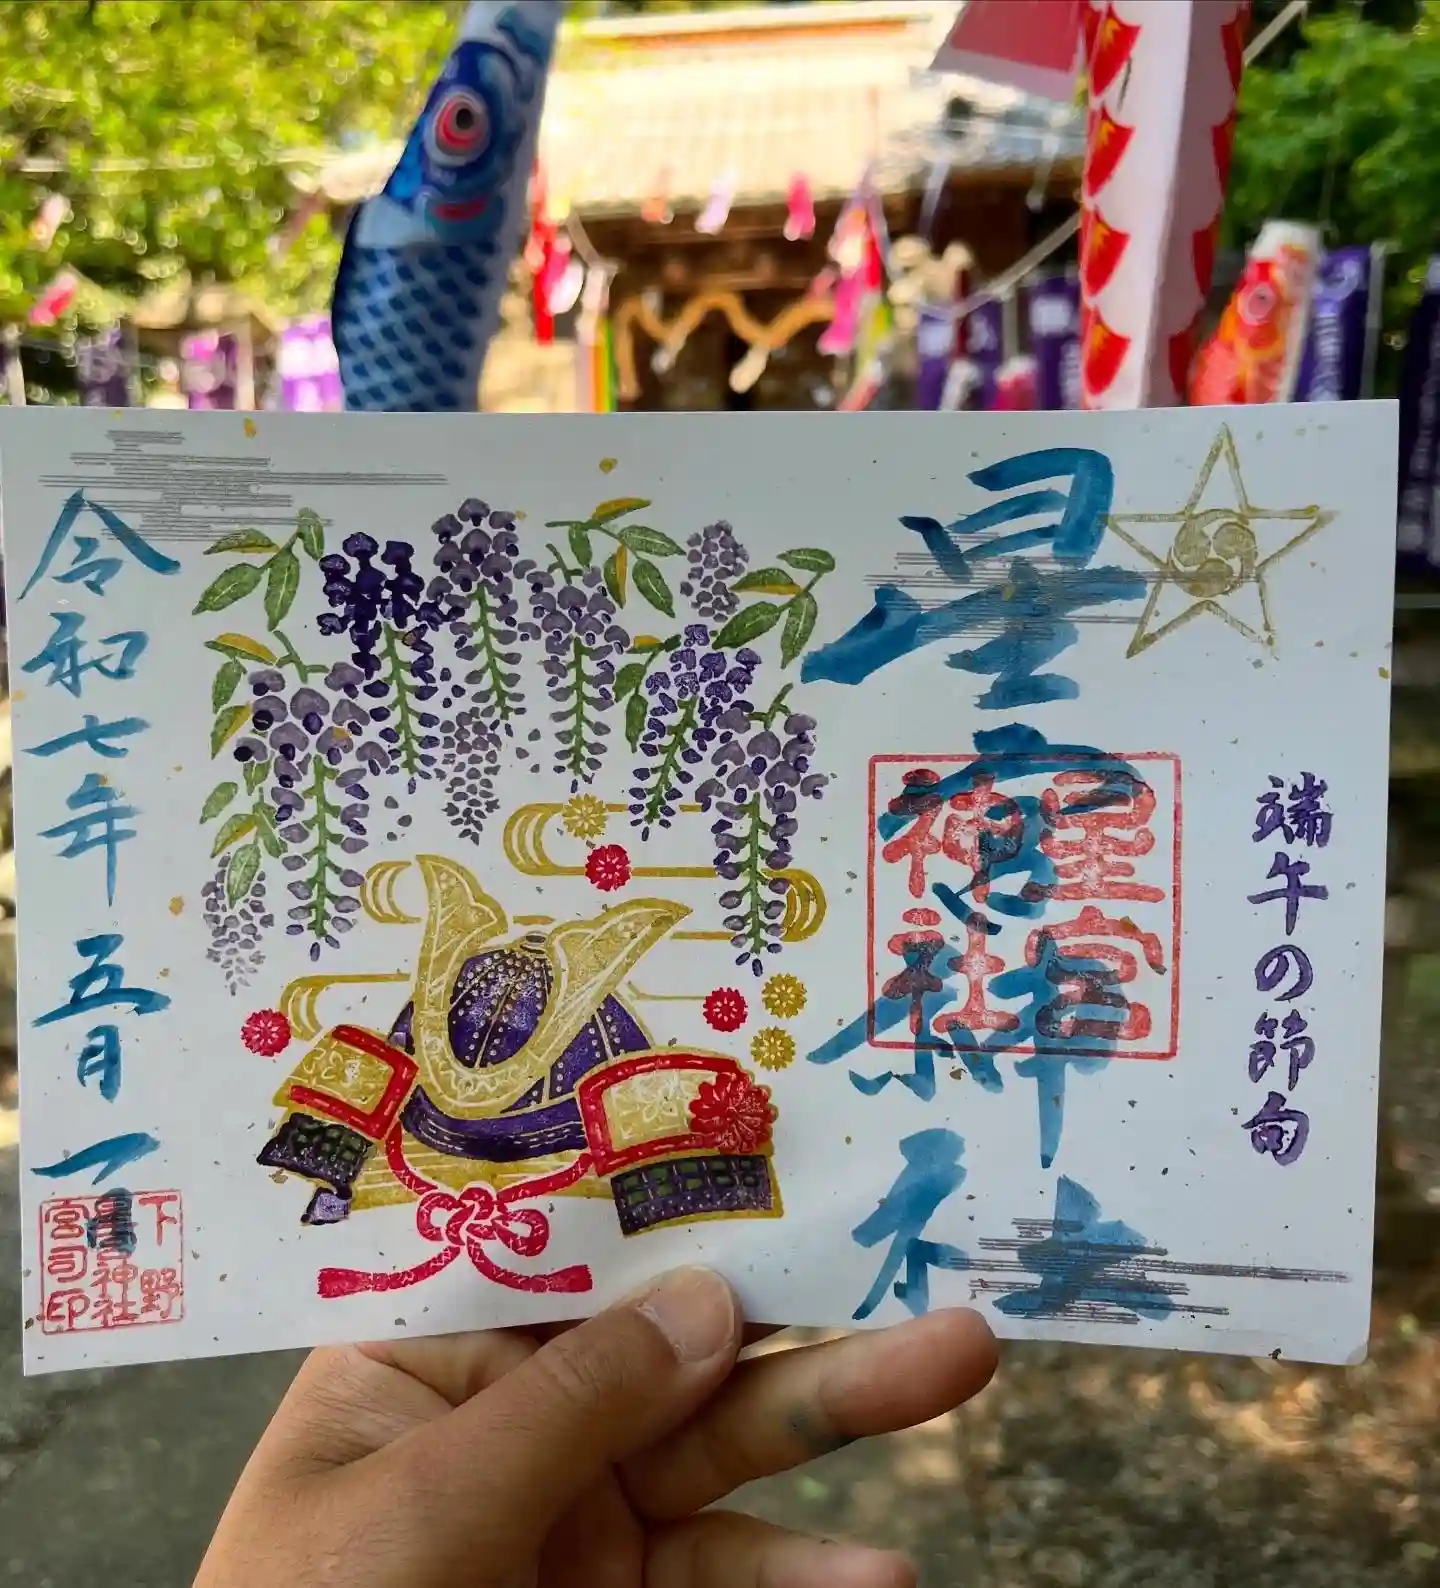 端午の節句
星宮神社
星宮
神社
令和七年 五月 一日
下野
星宮神社
宮司印